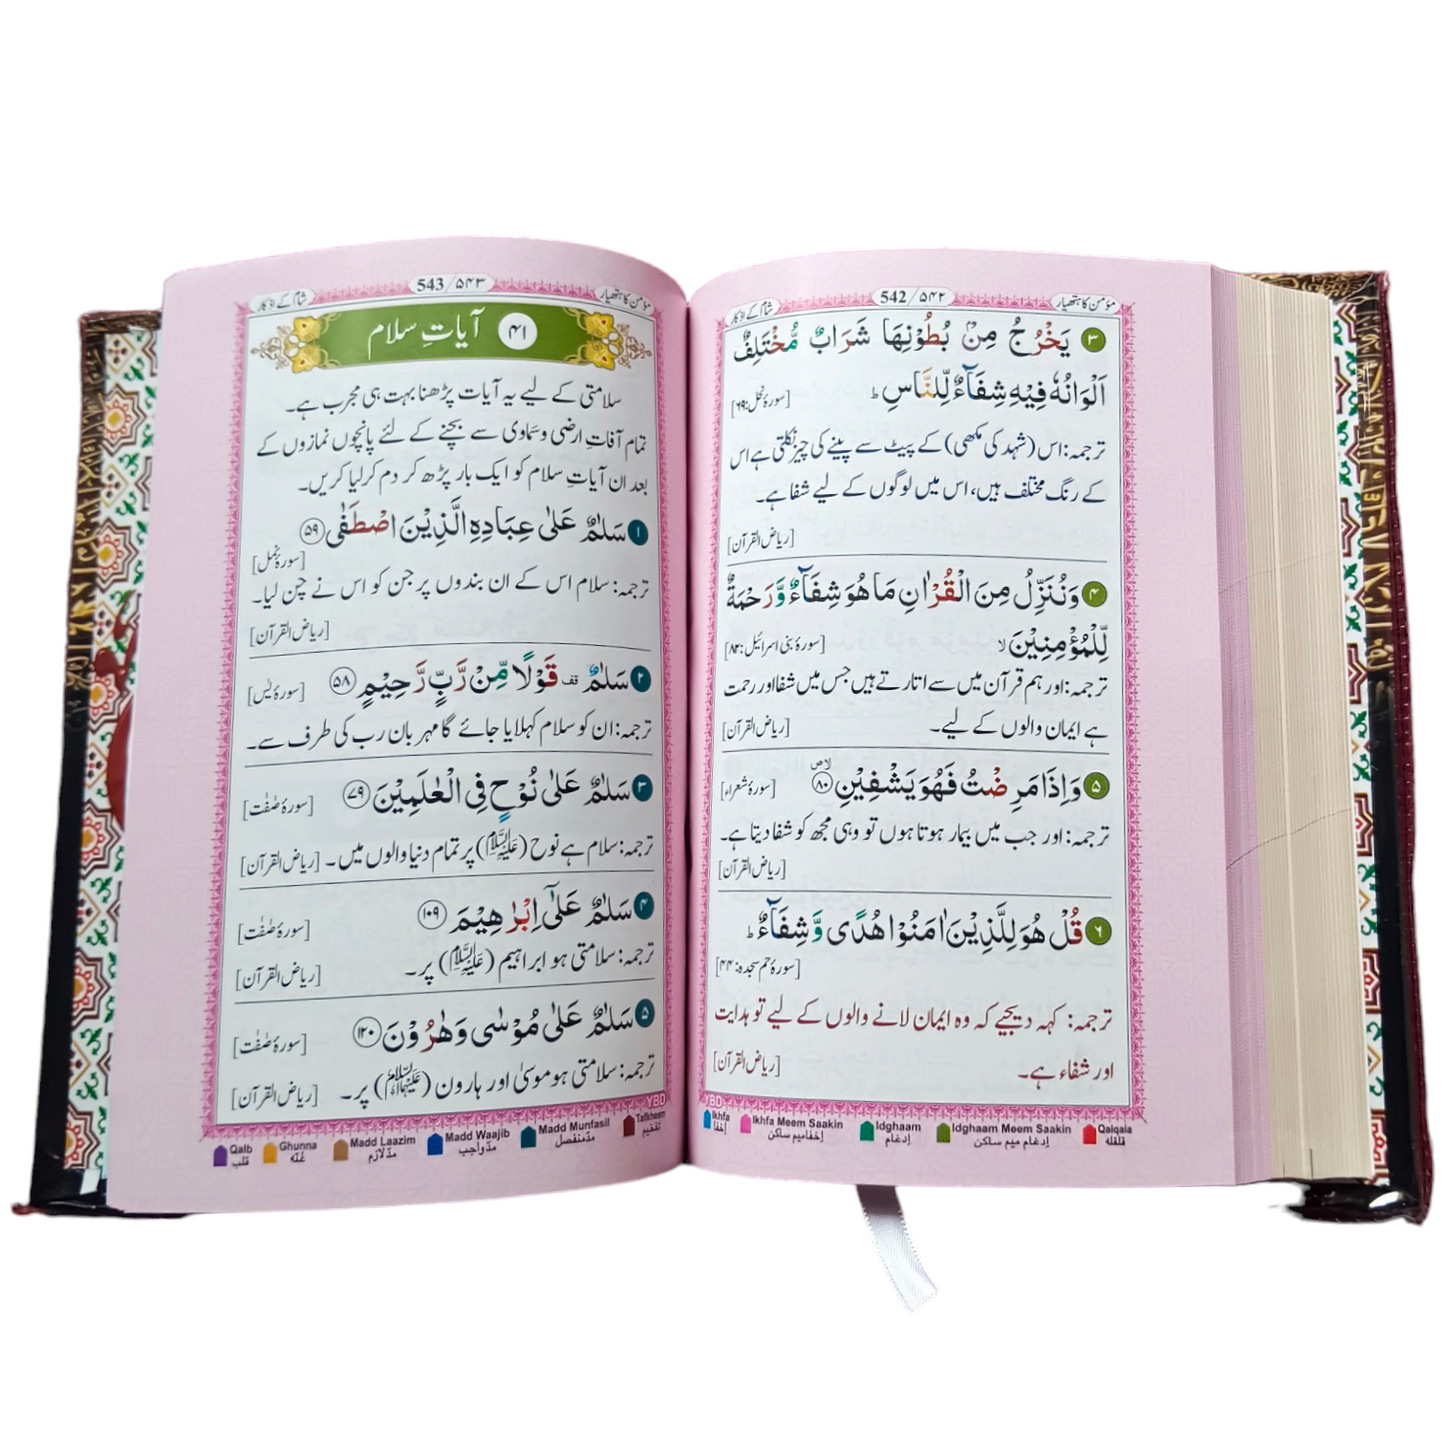 مؤمن کا ہتھیار
542 / ۵۴۲
شام کے اذکار
۳ یَخْرُجُ مِنْۢ بُطُوْنِهَا شَرَابٌ مُّخْتَلِفٌ
اَلْوَانُهٗ فِیْهِ شِفَآءٌ لِّلنَّاسِ ؕ [سورۂ نحل:۶۹]
ترجمہ: اس (شہد کی مکھی) کے پیٹ سے پینے کی چیز نکلتی ہے اس
کے رنگ مختلف ہیں، اس میں لوگوں کے لیے شفا ہے۔
[ریاض القرآن]
۴ وَنُنَزِّلُ مِنَ الْقُرْاٰنِ مَا هُوَ شِفَآءٌ وَّرَحْمَةٌ
لِّلْمُؤْمِنِیْنَ ۙ [سورۂ بنی اسرائیل:۸۲]
ترجمہ: اور ہم قرآن میں سے اتارتے ہیں جس میں شفا اور رحمت
ہے ایمان والوں کے لیے۔ [ریاض القرآن]
۵ وَاِذَا مَرِضْتُ فَهُوَ یَشْفِیْنِ ۸۰ [سورۂ شعراء]
ترجمہ: اور جب میں بیمار ہوتا ہوں تو وہی مجھ کو شفا دیتا ہے۔
[ریاض القرآن]
۶ قُلْ هُوَ لِلَّذِیْنَ اٰمَنُوْا هُدًی وَّشِفَآءٌ ؕ
[سورۂ حم سجدہ:۴۴]
ترجمہ: کہہ دیجیے کہ وہ ایمان لانے والوں کے لیے تو ہدایت
اور شفاء ہے۔ [ریاض القرآن]
YBD
Ikhfa Ikhfa Meem Saakin Idghaam Idghaam Meem Saakin Qalqala
اِخفا اِخفا میم ساکن اِدغام اِدغام میم ساکن قلقلہ
مؤمن کا ہتھیار
543 / ۵۴۳
شام کے اذکار
۴۱ آیاتِ سلام
سلامتی کے لیے یہ آیات پڑھنا بہت ہی مجرب ہے۔
تمام آفاتِ ارضی و سماوی سے بچنے کے لئے پانچوں نمازوں کے
بعد ان آیاتِ سلام کو ایک بار پڑھ کر دم کرلیا کریں۔
۱ سَلٰمٌ عَلٰی عِبَادِهِ الَّذِیْنَ اصْطَفٰی ۵۹
[سورۂ نمل]
ترجمہ: سلام اس کے ان بندوں پر جن کو اس نے چن لیا۔
[ریاض القرآن]
۲ سَلٰمٌ قف قَوْلًا مِّنْ رَّبٍّ رَّحِیْمٍ ۵۸ [سورۂ یٰس]
ترجمہ: ان کو سلام کہلایا جائے گا مہربان رب کی طرف سے۔
۳ سَلٰمٌ عَلٰی نُوْحٍ فِی الْعٰلَمِیْنَ ۷۹ [سورۂ صٰفٰت]
ترجمہ: سلام ہے نوح (عَلَیْہِ السَّلَام) پر تمام دنیا والوں میں۔ [ریاض القرآن]
۴ سَلٰمٌ عَلٰۤی اِبْرٰهِیْمَ ۱۰۹ [سورۂ صٰفٰت]
ترجمہ: سلامتی ہو ابراہیم (عَلَیْہِ السَّلَام) پر۔ [ریاض القرآن]
۵ سَلٰمٌ عَلٰی مُوْسٰی وَهٰرُوْنَ ۱۲۰ [سورۂ صٰفٰت]
ترجمہ: سلامتی ہو موسیٰ اور ہارون (عَلَیْہِمَا السَّلَام) پر۔ [ریاض القرآن]
YBD
Qalb Ghunna Madd Laazim Madd Waajib Madd Munfasil Tafkheem
قلب غُنّہ مدّ لازم مدّ واجب مدّ منفصل تفخیم